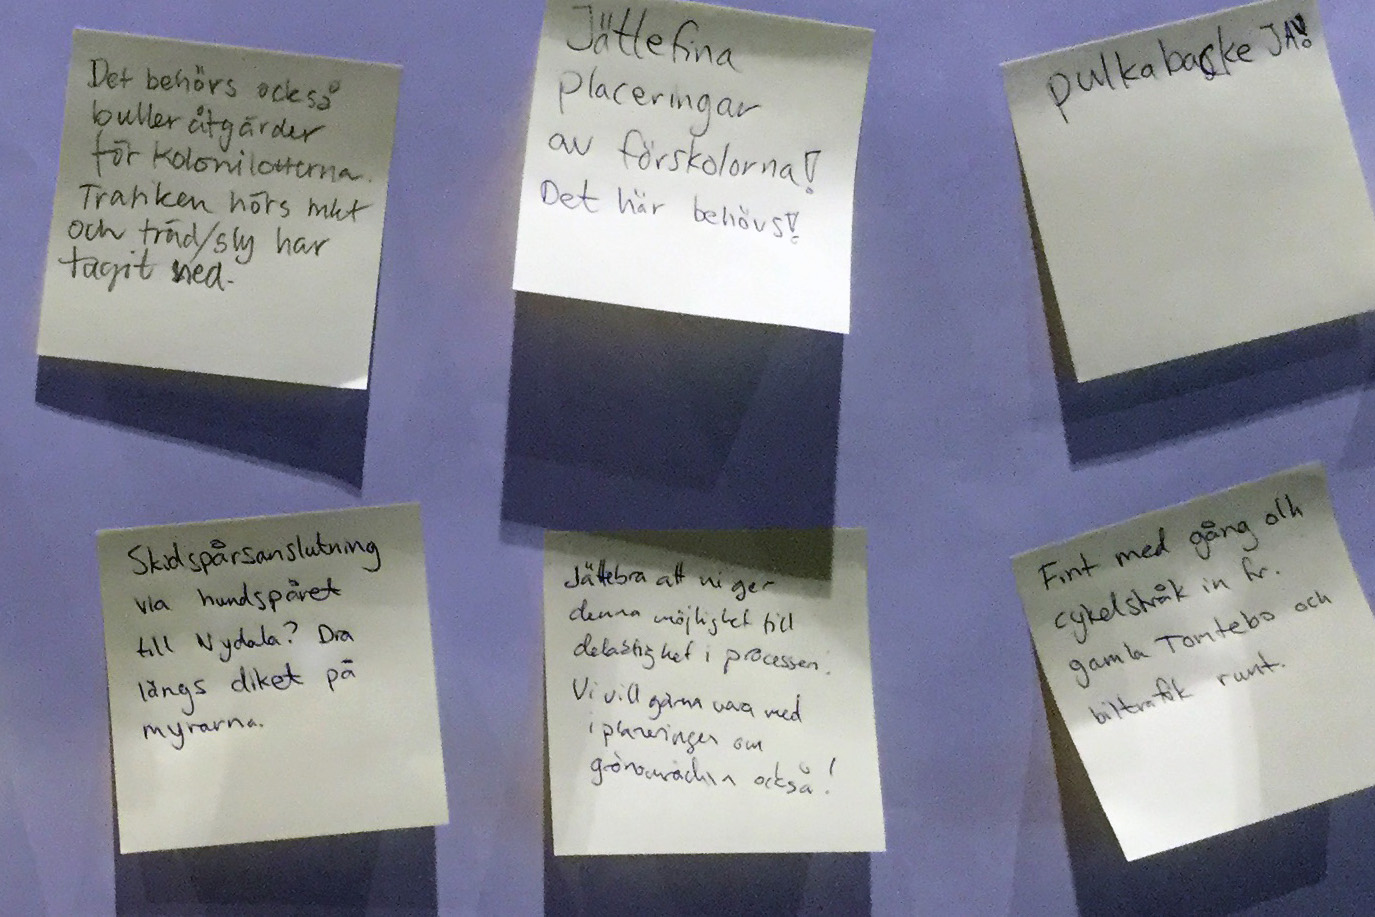 Det behörs också
buller åtgärder
för Kolonilotterna.
Trafiken hörs mkt
och träd/sly har
tagit ned.
Jättefina
placeringar
av förskolorna!
Det här behövs!
pulkabacke JA!
Skidspårsanslutning
via hundspåret
till Nydala? Dra
längs diket på
myrarna.
Jättebra att ni ger
denna möjlighet till
delaktighet i processen.
Vi vill gärna vara med
i planeringen om
också!
Fint med gång och
cykelstråk in fr.
gamla Tomtebo och
biltrafik runt.